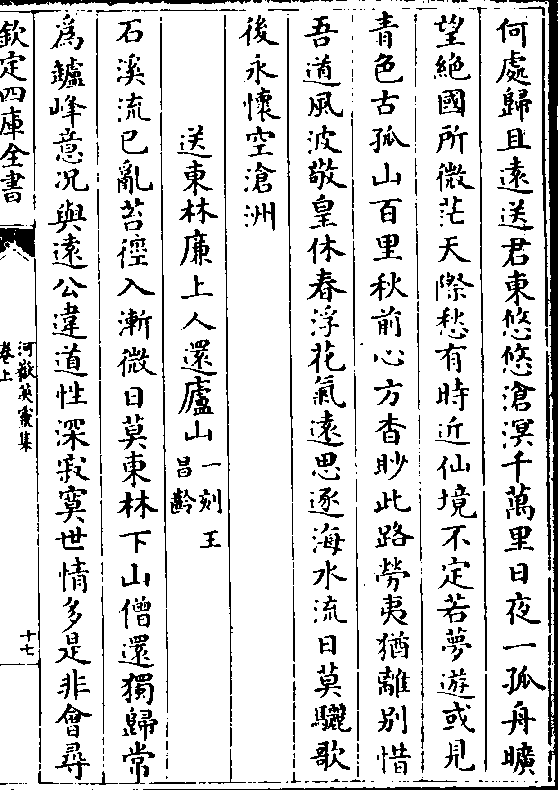 何處歸且遠送君東悠悠滄溟千萬里日夜一孤舟曠
望絶國所微茫天際愁有時近仙境不定若夢遊或見
青色古孤山百里秋前心方杳眇此路勞夷猶離别惜
吾道風波敬皇休春浮花氣遠思逐海水流日莫驪歌
後永懷空滄洲
送東林廉上人還廬山一刻王昌齡
石溪流已亂苔徑入漸微日莫東林下山僧還獨歸常
為鑪峰意况與遠公違道性深寂寞世情多是非會尋
欽定四庫全書
河嶽英靈集
卷上
十七